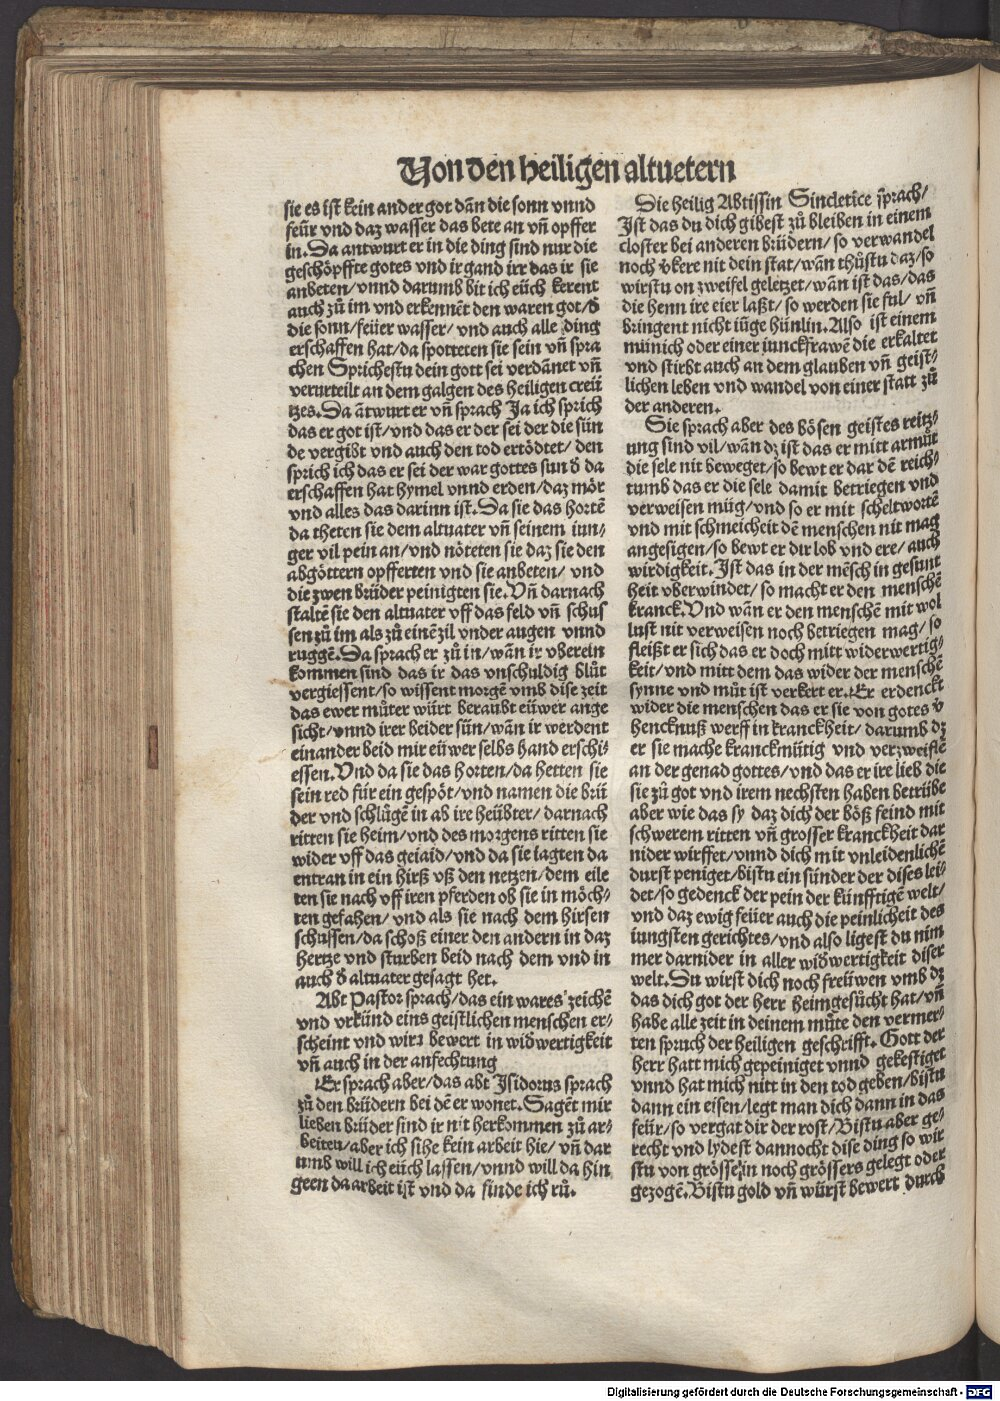 Von den heiligen altuetern
sie es ist kein ander got dãn die sonn vnnd
feür vnd daz wasser das bete an vñ opffer
in. Da antwurt er in die ding sind nur die
geschöpffte gotes vnd ir gand irr das ir sie
anbeten/vnnd darumb bit ich eüch kerent
auch zů im vnd erkennẽt den waren got/d̕
die sonn/feüer wasser/ vnd auch alle ding
erschaffen hat/da spotteten sie sein vñ spra
chen Sprichestu dein gott sei verdãnet vñ
verurteilt an dem galgen des heiligen creü
tzes. Da ãtwurt er vñ sprach Ja ich sprich
das er got ist/vnd das er der sei der die sün
de vergibt vnd auch den tod ertödtet/ den
sprich ich das er sei der war gottes sun d̕ da
erschaffen hat hymel vnnd erden/daz mör
vnd alles das darinn ist. Da sie das hortẽ
da theten sie dem altuater vñ seinem iun⸗
ger vil pein an/vnd nöteten sie daz sie den
abgöttern opfferten vnd sie anbeten/ vnd
die zwen brüder peinigten sie. Vñ darnach
staltẽ sie den altuater vff das feld vñ schus
sen zů im als zů einẽ zil vnder augen vnnd
ruggẽ. Da sprach er zů in/wãn ir vberein
kommen sind das ir das vnschuldig blůt
vergiessent/so wissent morgẽ vmb dise zeit
das ewer můter würt beraubt eüwer ange
sicht/vnnd irer beider sün/wãn ir werdent
einander beid mir eüwer selbs hand erschi⸗
essen. Vnd da sie das horten/da hetten sie
sein red für ein gespöt/vnd namen die brü
der vnd schlügẽ in ab ire heübter/ darnach
ritten sie heim/vnd des morgens ritten sie
wider vff das geiaid/vnd da sie iagten da
entran in ein hirß vß den netzen/dem eile
ten sie nach vff iren pferden ob sie in möch⸗
ten gefahen/ vnd als sie nach dem hirsen
schussen/da schoß einer den andern in daz
hertze vnd sturben beid nach dem vnd in
auch d̕ altuater gesagt het.
Abt Pastor sprach/das ein wares zeichẽ
vnd vrkünd eins geistlichen menschen er⸗
scheint vnd wirt bewert in wid̕wertigkeit
vñ auch in der anfechtung
Er sprach aber/das abt Isidorus sprach
zů den brüdern bei dẽ er wonet. Sagẽt mir
lieben brüder sind ir nit herkommen zů ar⸗
beiten/aber ich sihe kein arbeit hie/vñ dar
umb will ich eüch lassen/vnnd will da hin
geen da arbeit ist vnd da finde ich rů.
Die heilig Abtissin Sincletice sprach/
Ist das du dich gibest zů bleiben in einem
closter bei anderen brüdern/ so verwandel
noch v̕kere nit dein stat/wãn thůstu daz/so
wirstu on zweifel geletzet/wãn ist das/das
die henn ire eier laßt/so werden sie ful/ vñ
bringent nicht iüge hünlin. Also ist einem
münich oder einer iunckfrawẽ die erkaltet
vnd stirbt auch an dem glauben vñ geist⸗
lichen leben vnd wandel von einer statt zů
der anderen.
Sie sprach aber des bösen geistes reitz⸗
ung sind vil/wãn dz ist das er mitt armůt
die sele nit beweget/so bewt er dar dẽ reich⸗
tumb das er die sele damit betriegen vnd
verweisen müg/vnd so er mit scheltwortẽ
vnd mit schmeicheit dẽ menschen nit mag
angesigen/so bewt er dir lob vnd ere/ auch
wirdigkeit. Ist das in der mẽsch in gesunt
heit vberwindet/so macht er den menschẽ
kranck. Vnd wãn er den menschẽ mit wol
lust nit verweisen noch betriegen mag/ so
fleißt er sich das er doch mitt widerwertig⸗
keit/vnd mitt dem das wider der menschẽ
synne vnd můt ist verkert er. Er erdenckt
wider die menschen das er sie von gotes v̕
hencknuß werff in kranckheit/ darumb dz
er sie mache kranckmütig vnd verzweiflẽ
an der genad gottes/vnd das er ire lieb die
sie zů got vnd irem nechsten haben betrübe
aber wie das sy daz dich der böß feind mit
schwerem ritten vñ grosser kranckheit dar
nider wirffet/vnnd dich mit vnleidenlichẽ
durst peniget/bistu ein sünder der dises lei⸗
det/so gedenck der pein der künfftigẽ welt/
vnd daz ewig feüer auch die peinlicheit des
iungsten gerichtes/vnd also ligest du nim
mer darnider in aller wid̕wertigkeit diser
welt. Du wirst dich noch freüwen vmb dz
das dich got der herr heimgesůcht hat/vñ
habe alle zeit in deinem můte den vermer⸗
ten spruch der heiligen geschrifft. Gott der
herr hatt mich gepeiniget vnnd gekestiget
vnnd hat mich nitt in den tod geben/bistu
dann ein eisen/legt man dich dann in das
feür/so vergat dir der rost/Bistu aber ge⸗
recht vnd lydest dannocht dise ding so wir
stu von grössẽ in noch grössers gelegt oder
gezogẽ. Bistu gold vñ würst bewert durch
Digitalisierung gefördert durch die Deutsche Forschungsgemeinschaft - DFG